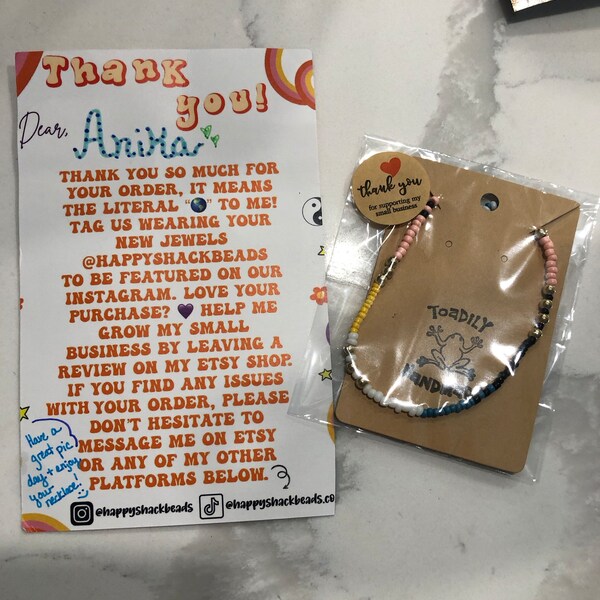 Thank
you!
Dear,
Anika
THANK YOU SO MUCH FOR
YOUR ORDER, IT MEANS
THE LITERAL “🌎” TO ME!
TAG US WEARING YOUR
NEW JEWELS
@HAPPYSHACKBEADS
TO BE FEATURED ON OUR
INSTAGRAM. LOVE YOUR
PURCHASE? 💜 HELP ME
GROW MY SMALL
BUSINESS BY LEAVING A
REVIEW ON MY ETSY SHOP.
IF YOU FIND ANY ISSUES
WITH YOUR ORDER, PLEASE
DON'T HESITATE TO
MESSAGE ME ON ETSY
OR ANY OF MY OTHER
PLATFORMS BELOW.
Have a
great pic
day + enjoy
your
necklace!
@happyshackbeads
@happyshackbeads.co
thank you
for supporting my
small business
TOADILY
HANDMADE